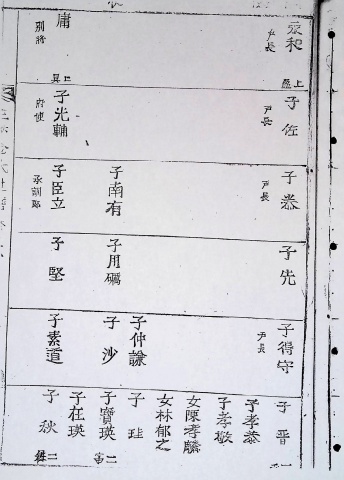 永和
戶長
上
庸
別將
子佐
戶長
子光輔
府使
子恭
戶長
子南有
子臣立
承訓郎
子先
子用礪
子堅
子得守
戶長
子仲諴
子沙
子素道
子晋
子孝恭
子孝敬
女陳孝麟
女林郁之
子珪
子寶瑛
二
子在瑛
子秋
二